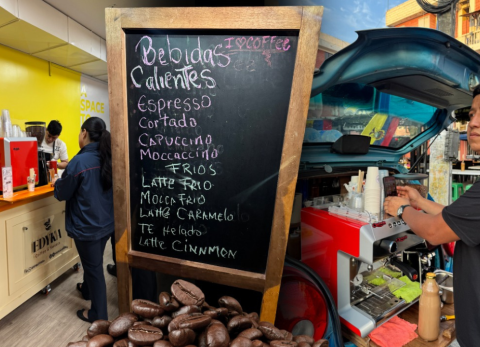 Bebidas
I ♡ COFFEE
Calientes
Espresso
Cortado
Capuccino
Moccaccino
FRIOS
Latte Frio
Mocca Frio
Latte Caramelo
Te Helado
Latte Cinnmon
SPACE